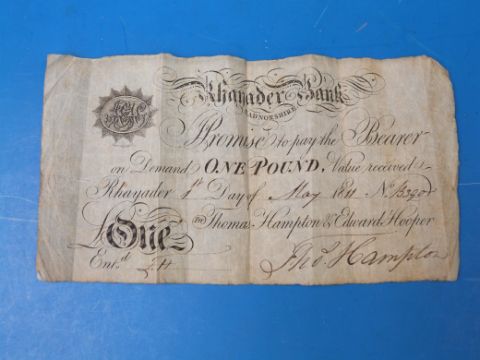 Rhayader Bank
RADNORSHIRE
I Promise to pay the Bearer
on Demand ONE POUND, Value received
Rhayader 1st Day of May 1811 No.
£One For Thomas Hampton & Edward Hooper
Entd. Thos. Hampton